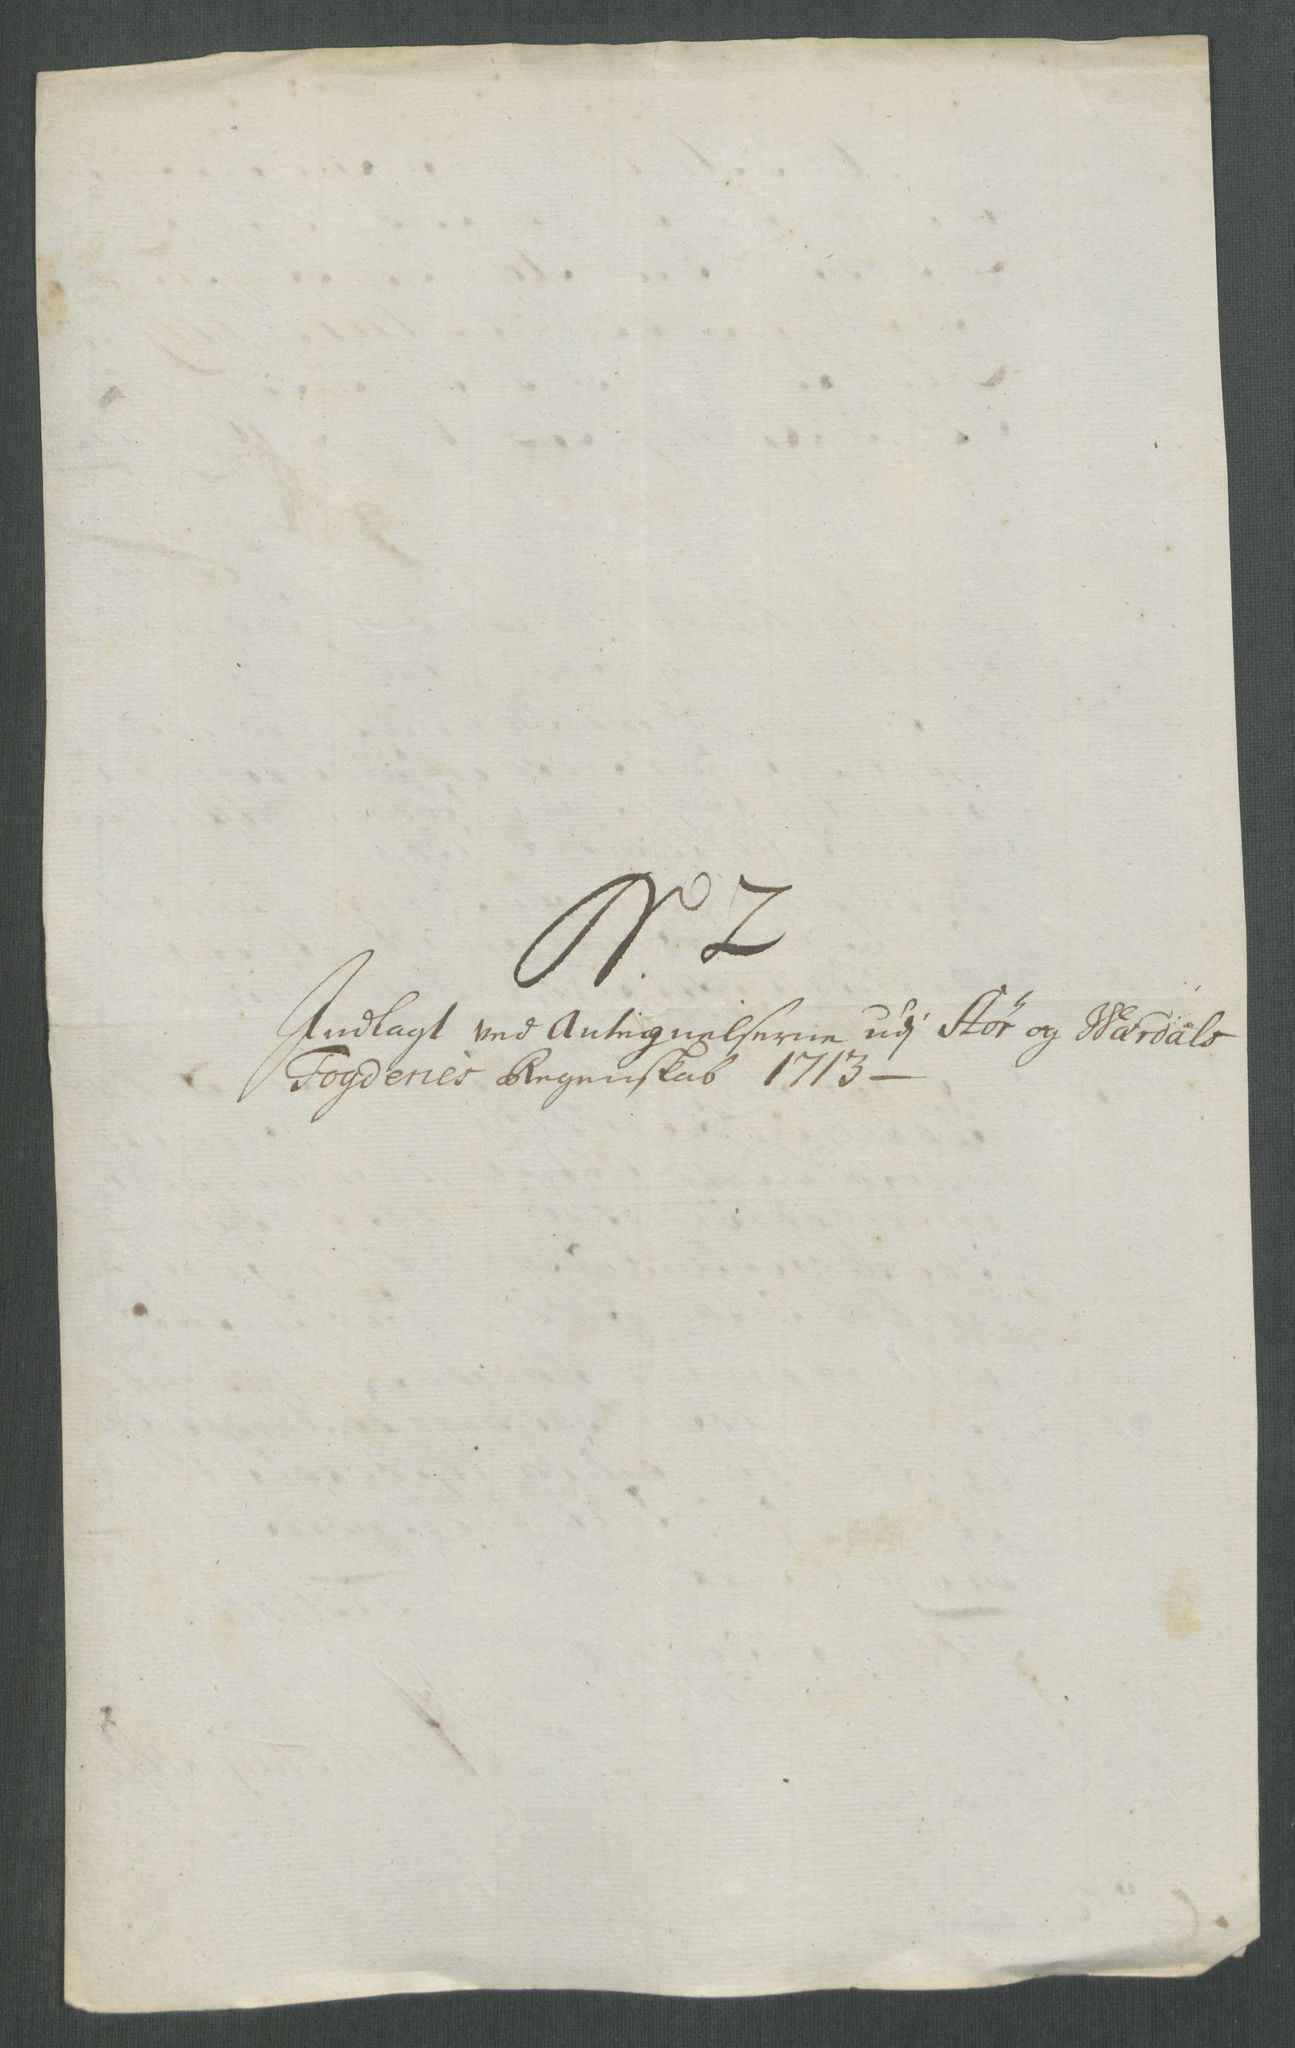 No 2
Indlagt ved Antegnelserne udj Stör og Wærdals
Fogderies Regenskab 1713 —